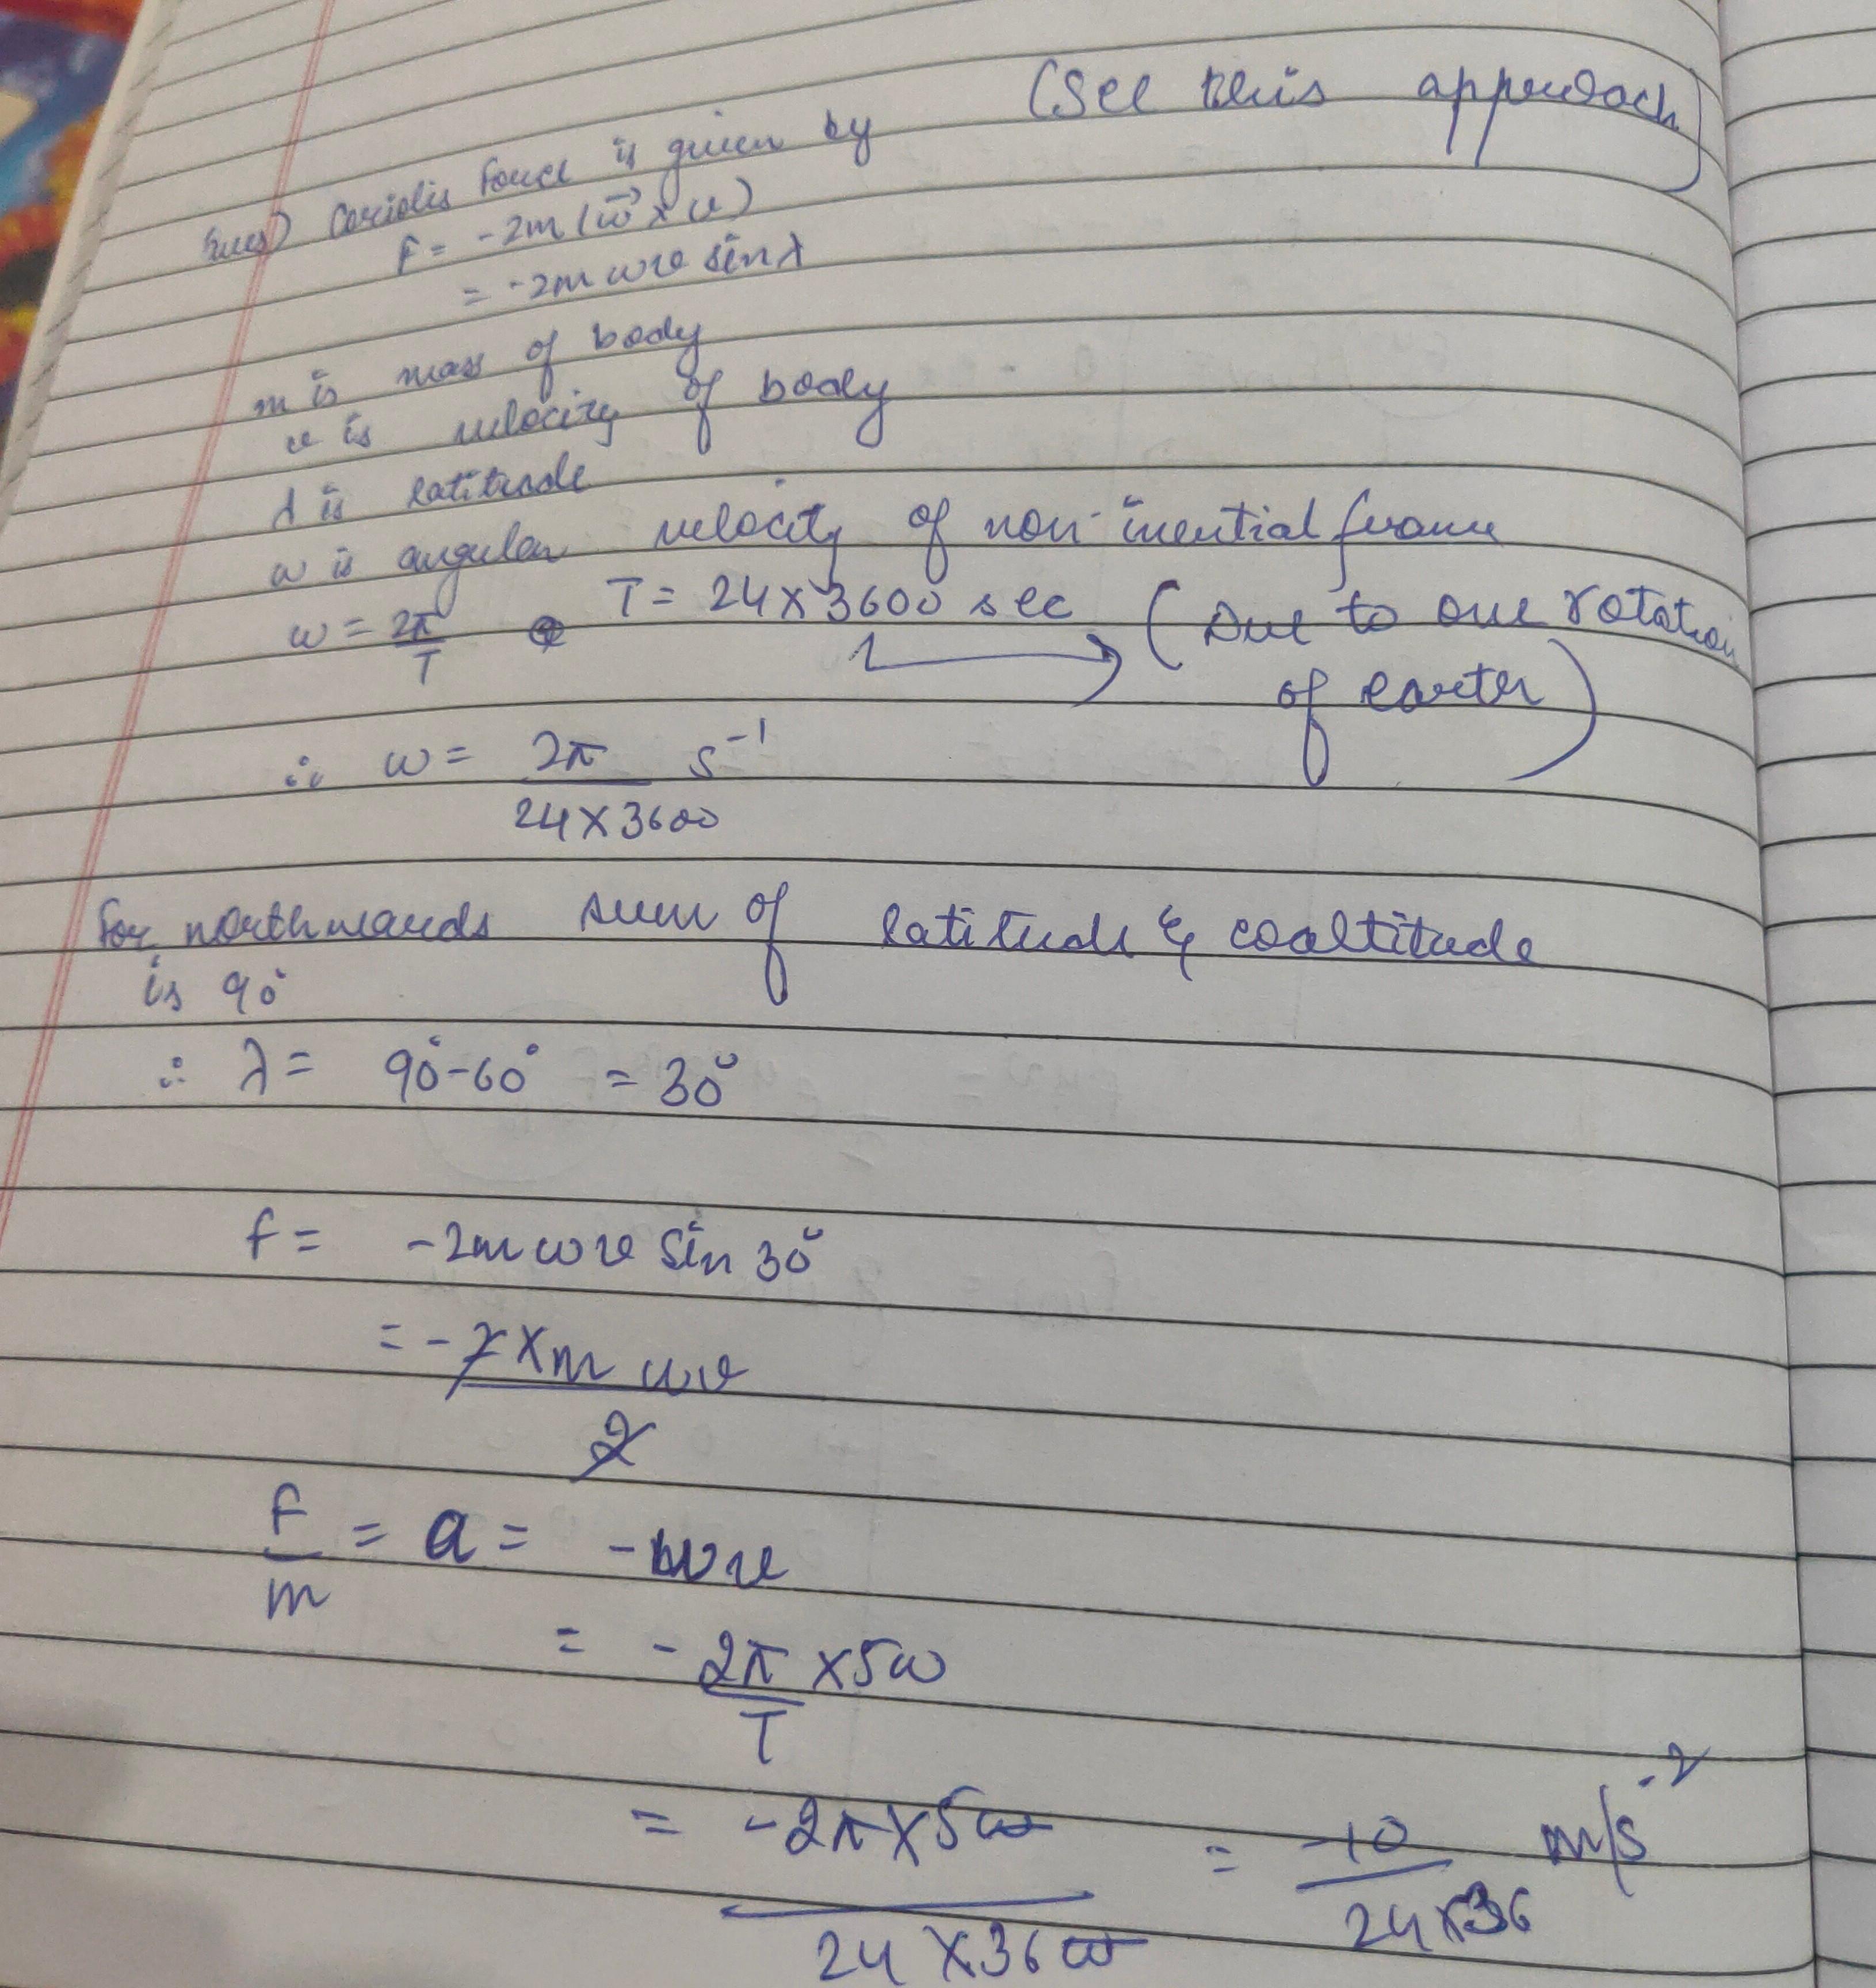 (See this approach)
Coriolis Force is given by
F = -2m (ω⃗ × v)
= -2m ωv sinλ
m is mass of body
v is velocity of body
λ is latitude
ω is angular velocity of non-inertial frame
ω = 2π/T T = 24×3600 sec (Due to one rotation
of earth)
∴ ω = 2π/24×3600 s⁻¹
For northwards sum of latitude & coaltitude
is 90°
∴ λ = 90°-60° = 30°
F = -2m ωv sin 30°
= -2×m ωv/2
F/m = a = -ωv
= -2π/T ×500
= -2π×500/24×3600 = -10/24×36 m/s⁻²